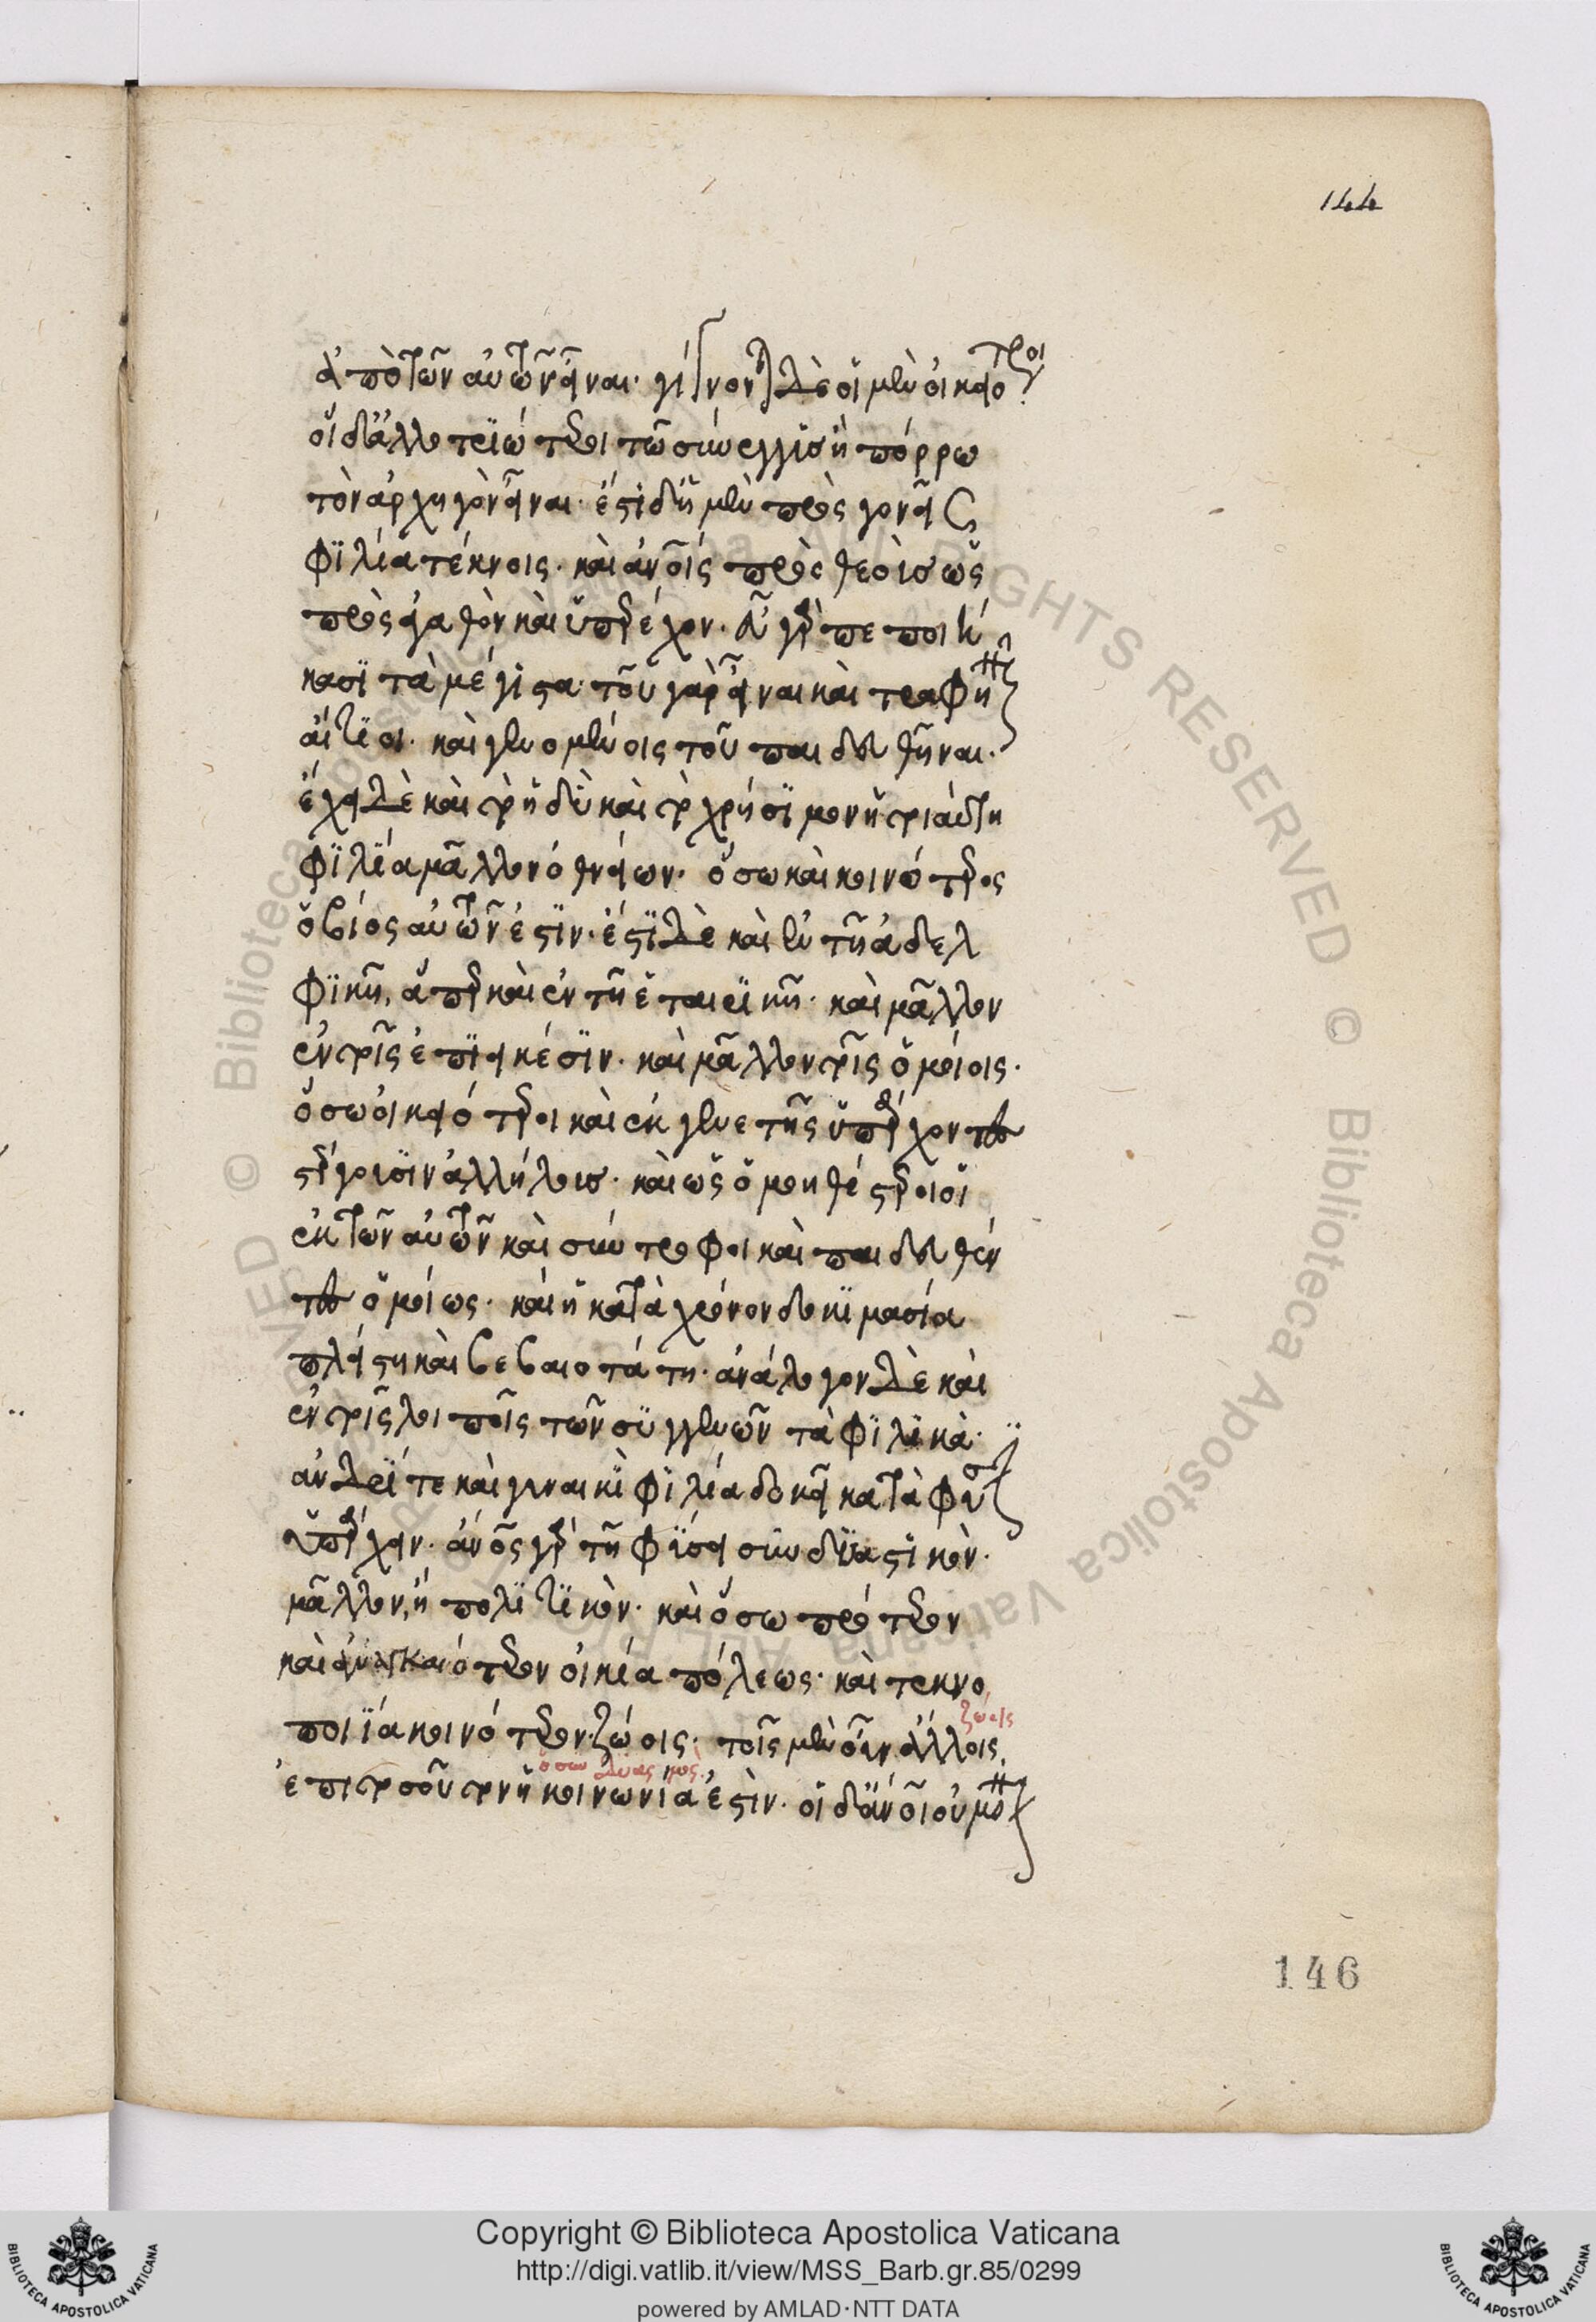 144
ἀπὸ τῶν αὐτῶν εἶναι· γίνονται δὲ οἱ μὲν οἰκειότεροι
οἱ δ' ἀλλοτριώτεροι τῶ σύνεγγυς ἢ πόρρω
τὸν ἀρχηγὸν εἶναι· ἔστι δ' ἡ μὲν πρὸς γονεῖς
φιλία τέκνοις· καὶ ἀνοις πρὸς θεοὺς ὡς
πρὸς ἀγαθὸν καὶ ὑπερέχον· εὖ γὰρ πεποιή
κασι τὰ μέγιστα· τοῦ γὰρ εἶναι καὶ τραφῆναι
αἴτιοι· καὶ γενομένοις τοῦ παιδευθῆναι·
ἔχει δὲ καὶ τὸ ἡδὺ καὶ τὸ χρήσιμον ἡ τοιαύτη
φιλία μᾶλλον ὀθνείων· ὅσω καὶ κοινότερος
ὁ βίος αὐτῶν ἐστιν· ἔστι δὲ καὶ ἐν τῆ ἀδελ
φικῆ, ἅπερ καὶ ἐν τῆ ἑταιρικῆ· καὶ μᾶλλον
ἐν τοῖς ἐπιεικέσιν· καὶ μᾶλλον τοῖς ὁμοίοις·
ὅσω οἰκειότεροι καὶ ἐκ γενετῆς ὑπάρχοντες
στέργουσιν ἀλλήλους· καὶ ὡς ὁμοηθέστεροι οἱ
ἐκ τῶν αὐτῶν καὶ σύντροφοι καὶ παιδευθέν
τες ὁμοίως· καὶ ἡ κατὰ χρόνον δοκιμασία
πλείστη καὶ βεβαιοτάτη· ἀνάλογον δὲ καὶ
ἐν τοῖς λοιποῖς τῶν συγγενῶν τὰ φιλικὰ·
ἀνδρί τε καὶ γυναικὶ φιλία δοκεῖ κατὰ φύσιν
ὑπάρχειν· ἀνος γὰρ τῆ φύσει συνδυαστικὸν·
μᾶλλον, ἢ πολιτικὸν· καὶ ὅσω πρότερον
καὶ ἀναγκαιότερον οἰκία πόλεως· καὶ τεκνο
ποιία κοινότερον ζώοις· τοῖς μὲν οὖν ἄλλοις
ζώοις
ἐπὶ τοσοῦτον ἡ κοινωνία ἐστὶν· οἱ δ' ἄνοι οὐ μόνον
146
Copyright © Biblioteca Apostolica Vaticana
http://digi.vatlib.it/view/MSS_Barb.gr.85/0299
powered by AMLAD·NTT DATA
BIBLIOTECA APOSTOLICA VATICANA
BIBLIOTECA APOSTOLICA VATICANA